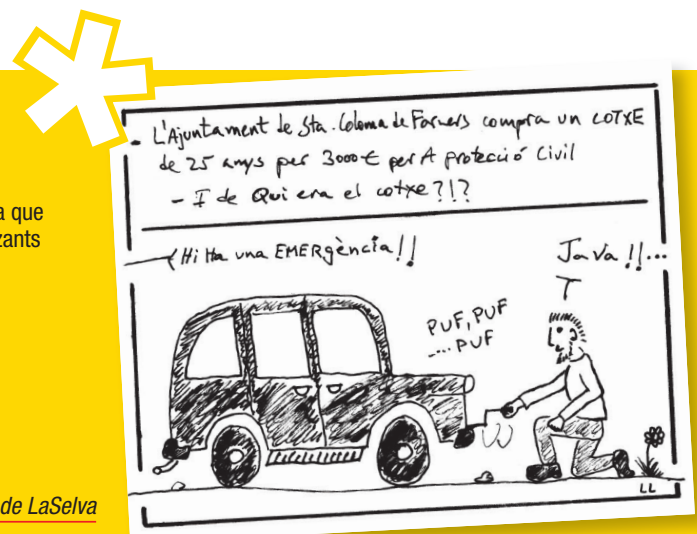 a que
zants
de LaSelva
- L'Ajuntament de Sta. Coloma de Farners compra un COTXE
de 25 anys per 3000 € per A protecció Civil
- I de Qui era el cotxe?!?
Hi Ha una EMERgència!!
Ja va!!...
PUF, PUF
.... PUF
LL